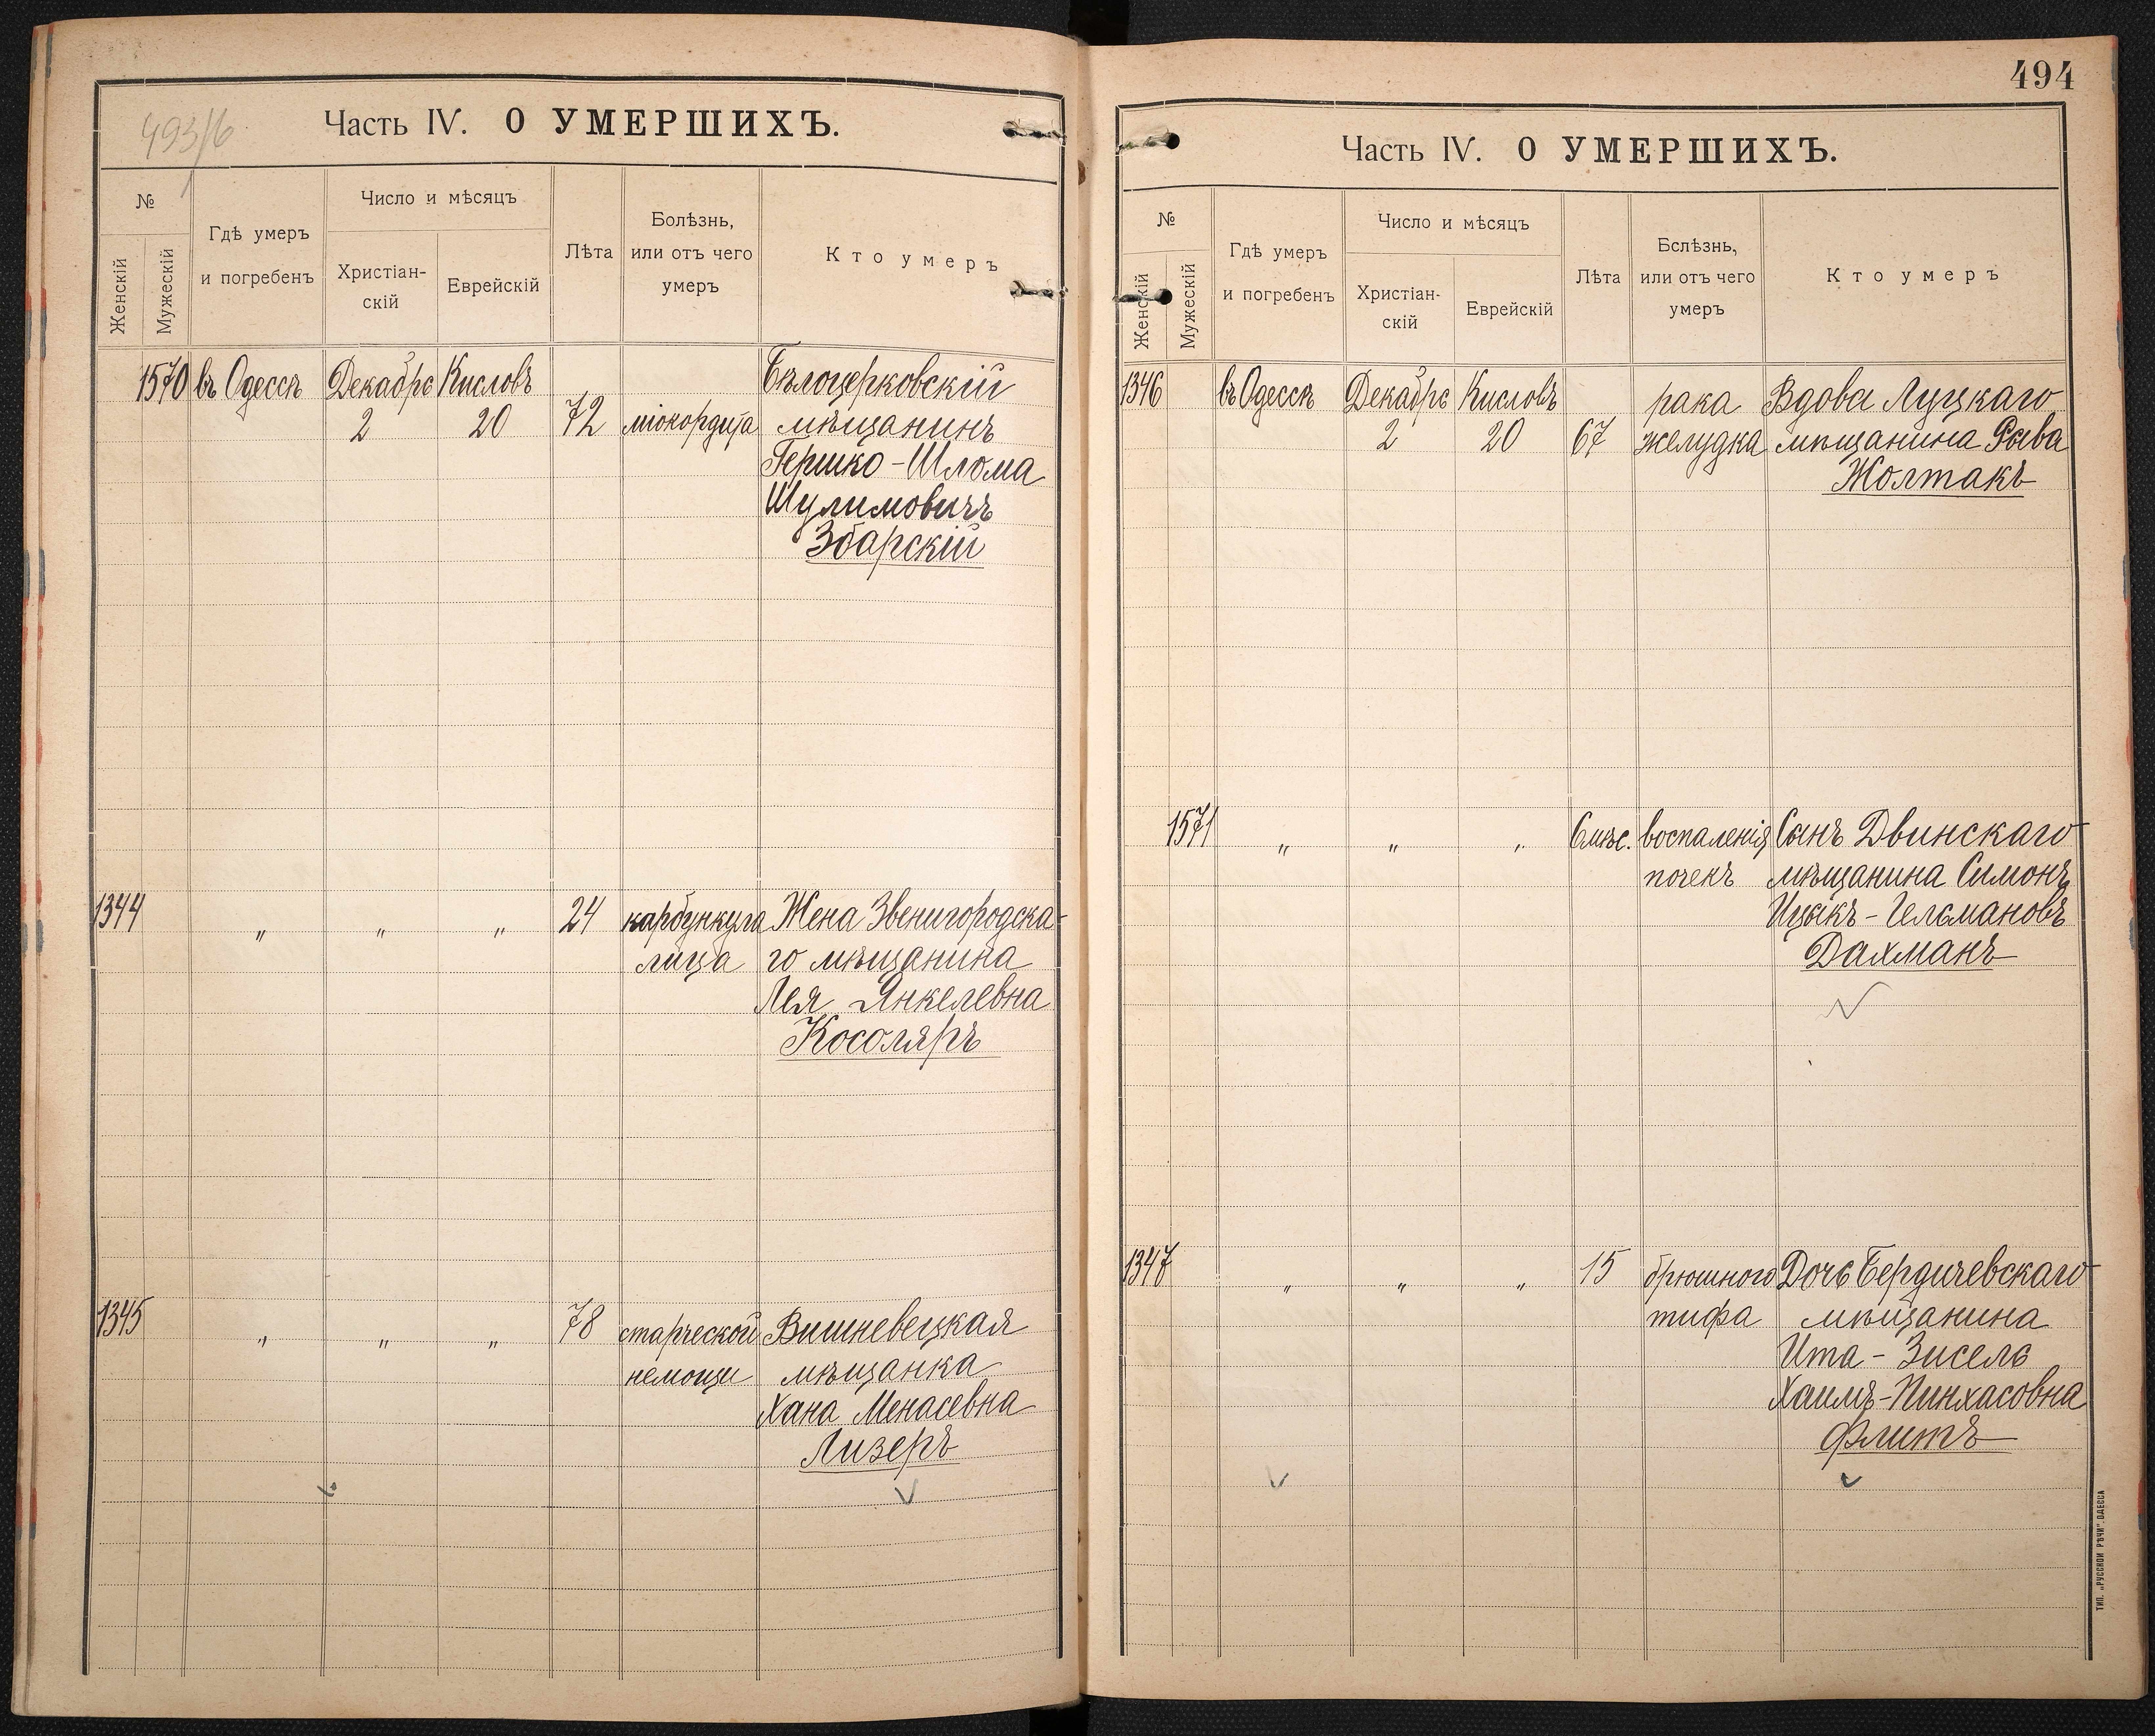 493/б
Часть IV. О УМЕРШИХЪ.
№
Женскій
Мужескій
Гдѣ умеръ
и погребенъ
Число и мѣсяцъ
Христіан-
скій
Еврейскій
Лѣта
Болѣзнь,
или отъ чего
умеръ
Кто умеръ
1570 въ Одессѣ Декабрь Кисловъ Бѣлоцерковскій
2 20 72 міокардита мѣщанинъ
Гершко-Шлома
Шулимовичъ
Збарскій
1344 „ „ „ 24 карбункула Жена Звенигородска-
лица го мѣщанина
Лея Янкелевна
Косоляръ
1345 „ „ „ 78 старческой Вишневецкая
немощи мѣщанка
Хана Менасевна
Лизеръ
494
Часть IV. О УМЕРШИХЪ.
№
Женскій
Мужескій
Гдѣ умеръ
и погребенъ
Число и мѣсяцъ
Христіан-
скій
Еврейскій
Лѣта
Бслѣзнь,
или отъ чего
умеръ
Кто умеръ
1346 въ Одессѣ Декабрь Кисловъ рака Вдова Луцкаго
2 20 67 желудка мѣщанина Рыва
Жолтакъ
1571 „ „ „ 6 мѣс. воспаленія Сынъ Двинскаго
почекъ мѣщанина Симонъ
Ицыкъ-Гельмановъ
Дахманъ
1347 „ „ „ 15 брюшного Дочь Бердичевскаго
тифа мѣщанина
Ита-Зисель
Хаимъ-Пинхасовна
Флитъ
ТИП. „РУССКОЙ РѢЧИ". ОДЕССА